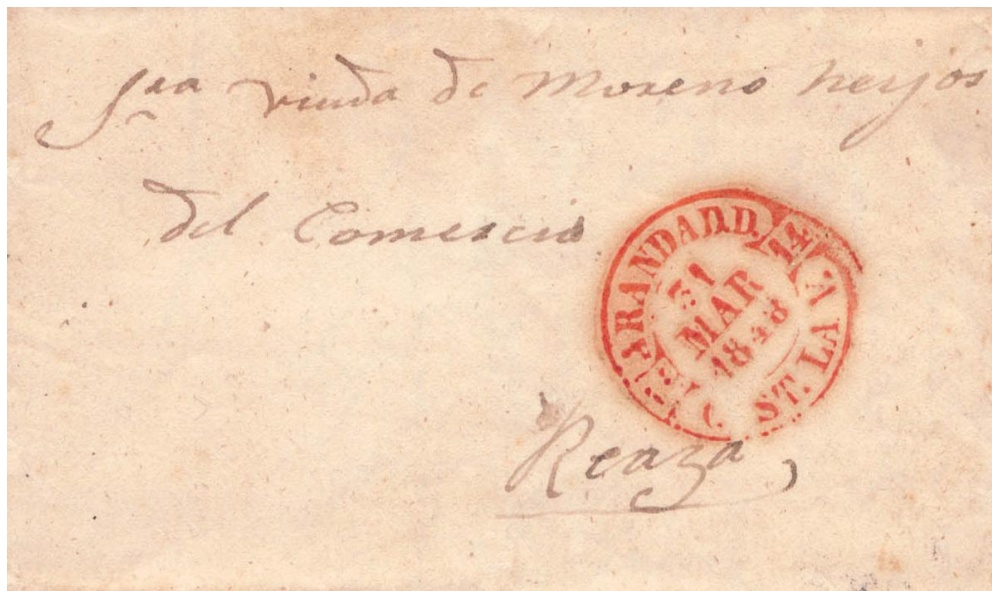 Sra viuda de Moreno heyjos
del Comercio
ARANDA D.D.
31
MAR
1848
CAST. LA VA
Reaza